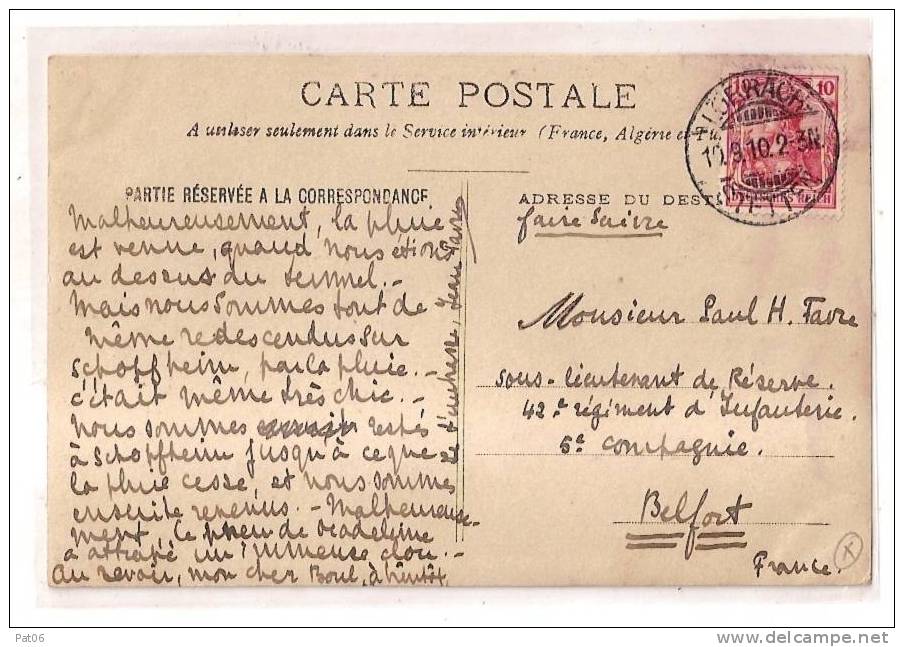 CARTE POSTALE
A utiliser seulement dans le Service intérieur (France, Algérie et
PARTIE RÉSERVÉE A LA CORRESPONDANCE
Malheureusement, la pluie
est venue, quand nous étions
au dessus du
Mais nous sommes tout de
même redescendus sur
Schopfheim, par la pluie. -
C'était même très chic. -
Nous sommes restés
à Schopfheim jusqu'à ce que
la pluie cesse, et nous sommes
ensuite revenus. - Malheureuse-
ment, le pneu de Madeleine
a attrapé un immense clou. -
Au revoir, mon cher Boul, à bientôt,
Jean Favre
ADRESSE DU DEST
faire suivre
Monsieur Paul H. Favre
sous-lieutenant de Réserve.
42e régiment d'Infanterie.
6e compagnie.
Belfort
France.
10
10.9.10.2-3N.
REICH
Pat06
www.delcampe.net